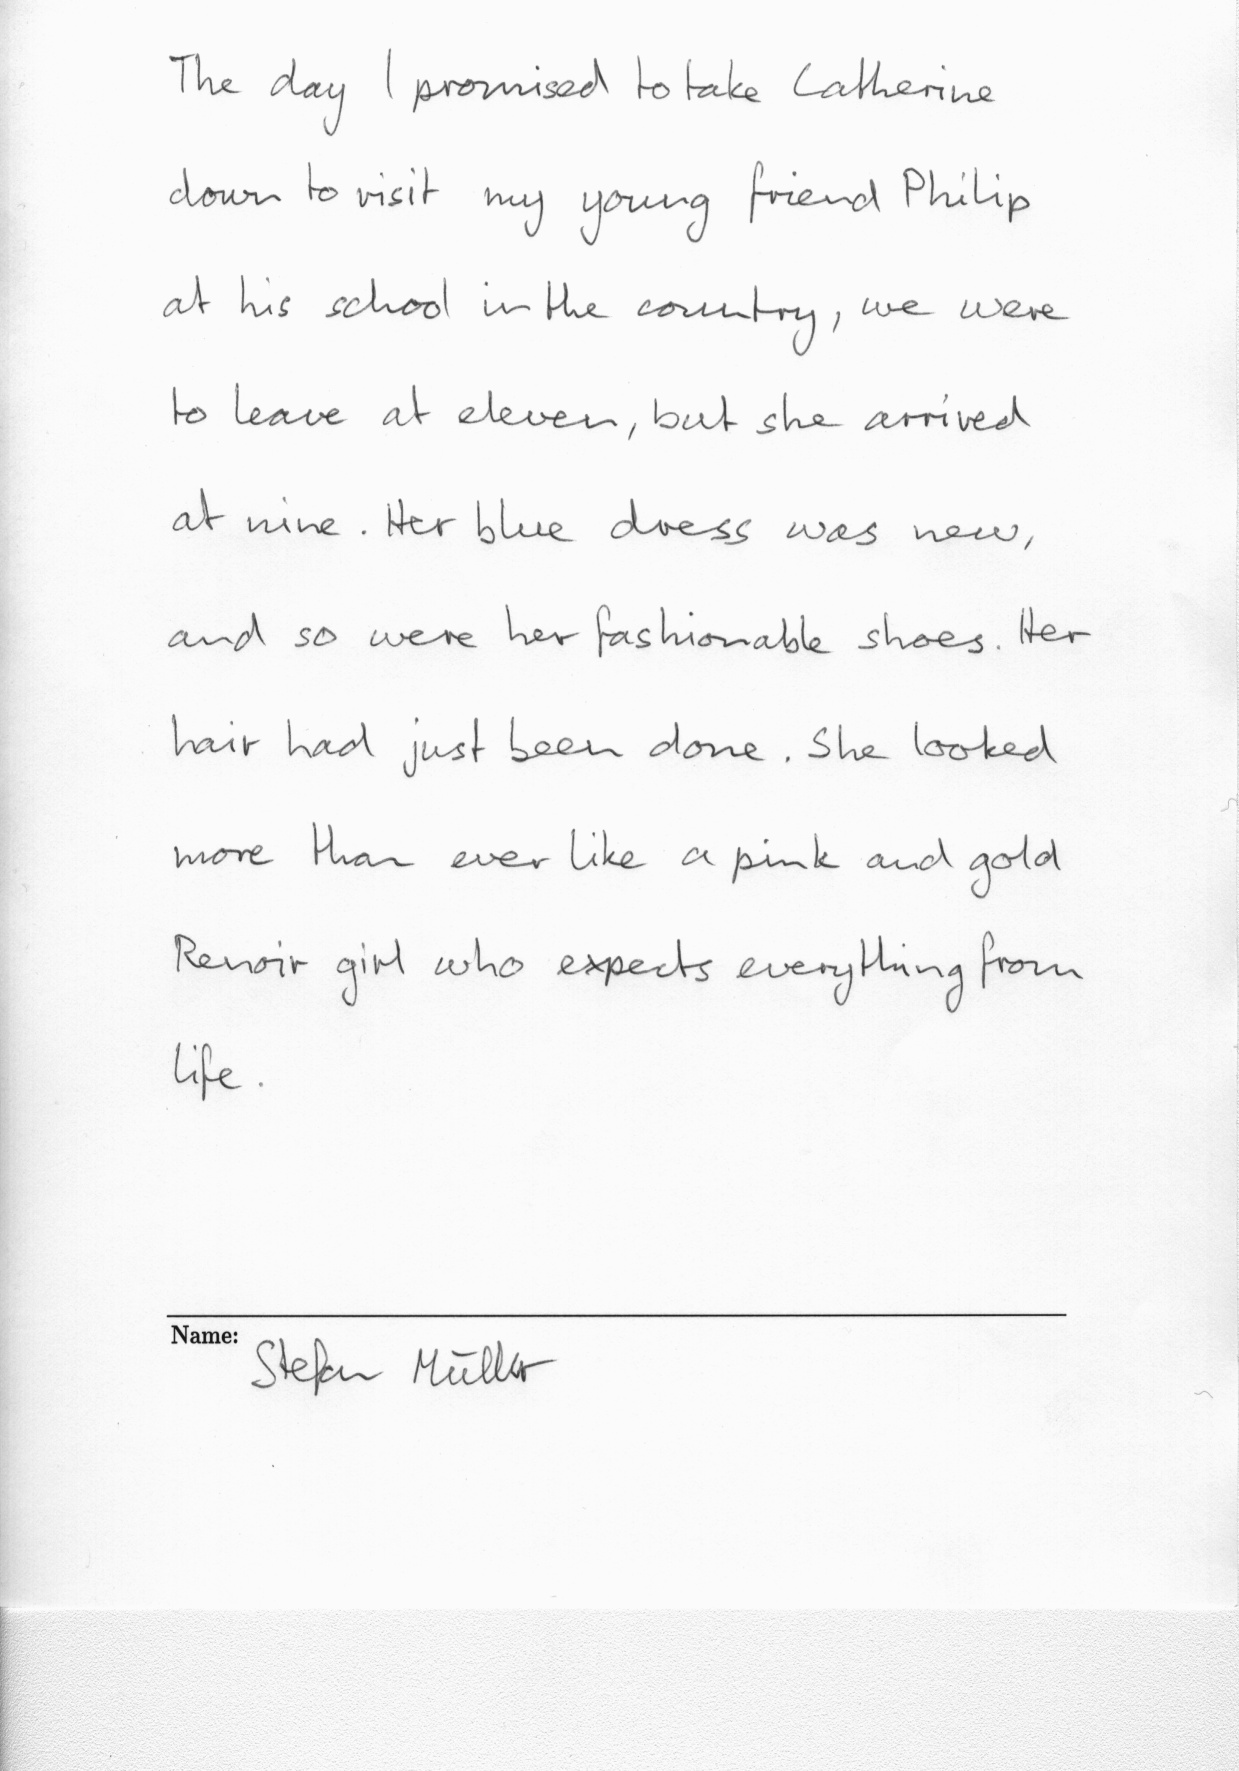 The day I promised to take Catherine
down to visit my young friend Philip
at his school in the country, we were
to leave at eleven, but she arrived
at nine. Her blue dress was new,
and so were her fashionable shoes. Her
hair had just been done. She looked
more than ever like a pink and gold
Renoir girl who expects everything from
life.
Name:
Stefan Müller